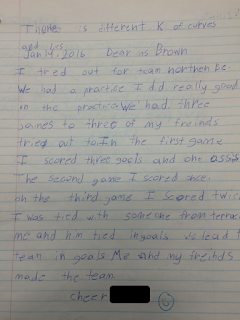 There is different K of curves
and les
Jan 14, 2016 Dear ms Brown
I tried out for team northen be.
We had a practice I did really good
in the practice We had three
games to three of my freinds
tried out to In the first game
I scored three goals and one assis
The second game I scored once.
on the third game I scored twic
I was tied with someone from terrac
me and him tied in goals we lead t
team in goals Me and my freihds
made the team
cheer